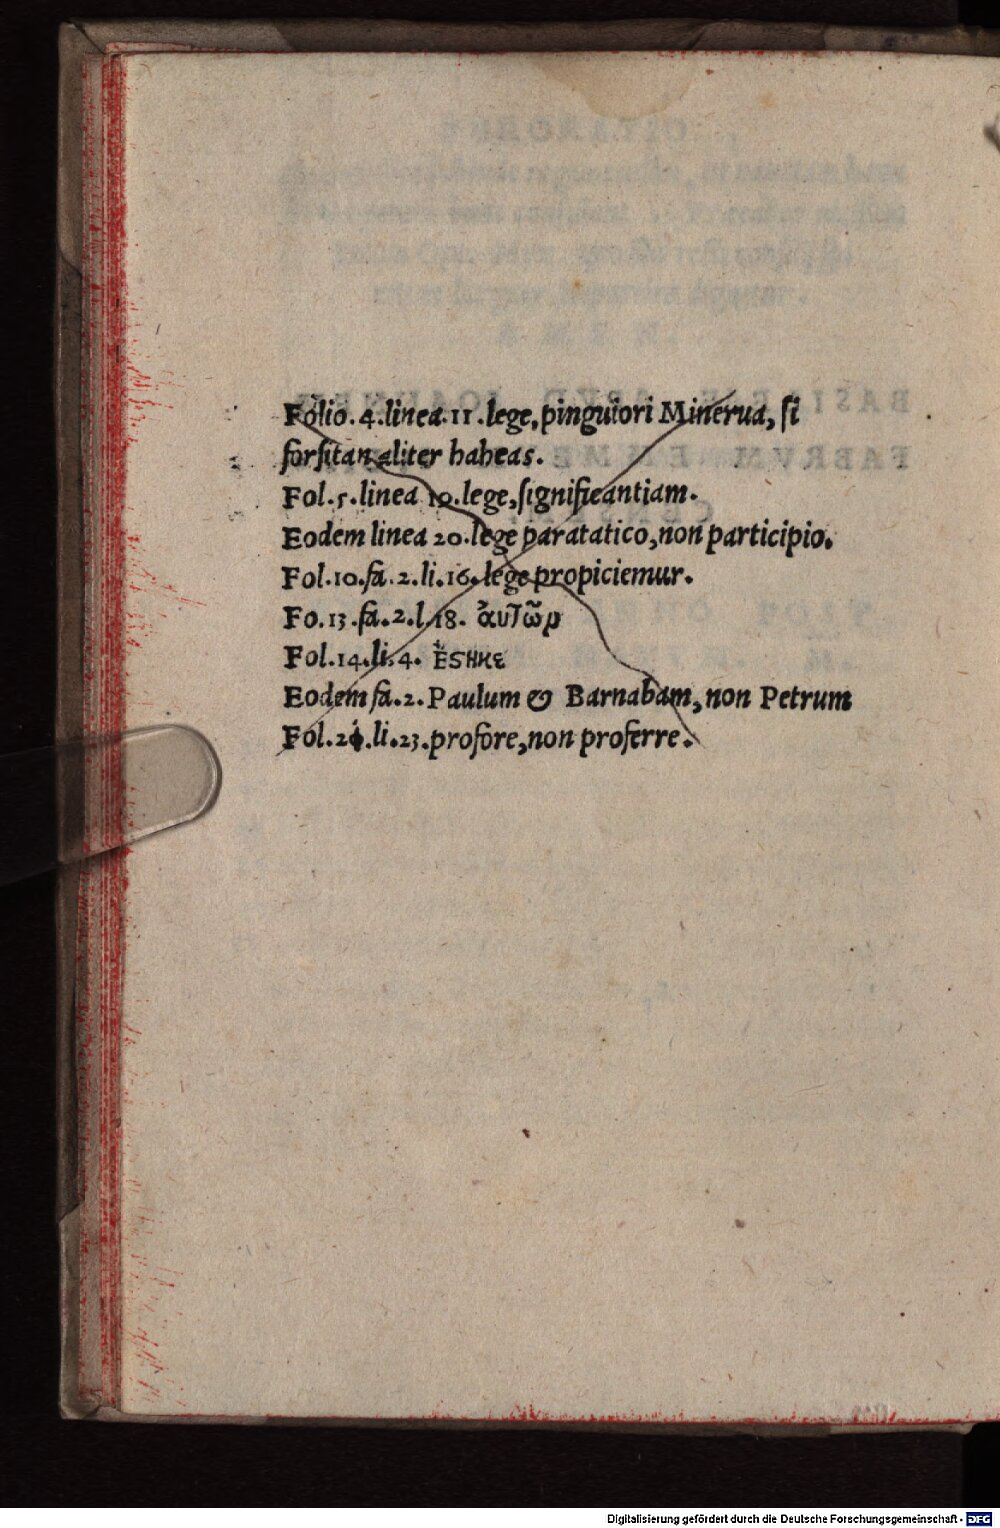 Folio.4.linea.11.lege,pinguiori Minerua, ſi
forſitan aliter habeas.
Fol.5.linea 19.lege,ſignificantiam.
Eodem linea 20.lege paratatico,non participio.
Fol.10.fa.2.li.16.lege propiciemur.
Fo.13.fa.2.l.18. ἀυτῶρ
Fol.14.li.4. ἔϛηκε
Eodem fa.2.Paulum & Barnabam,non Petrum
li.23.profore,non proferre.
Digitalisierung gefördert durch die Deutsche Forschungsgemeinschaft - DFG